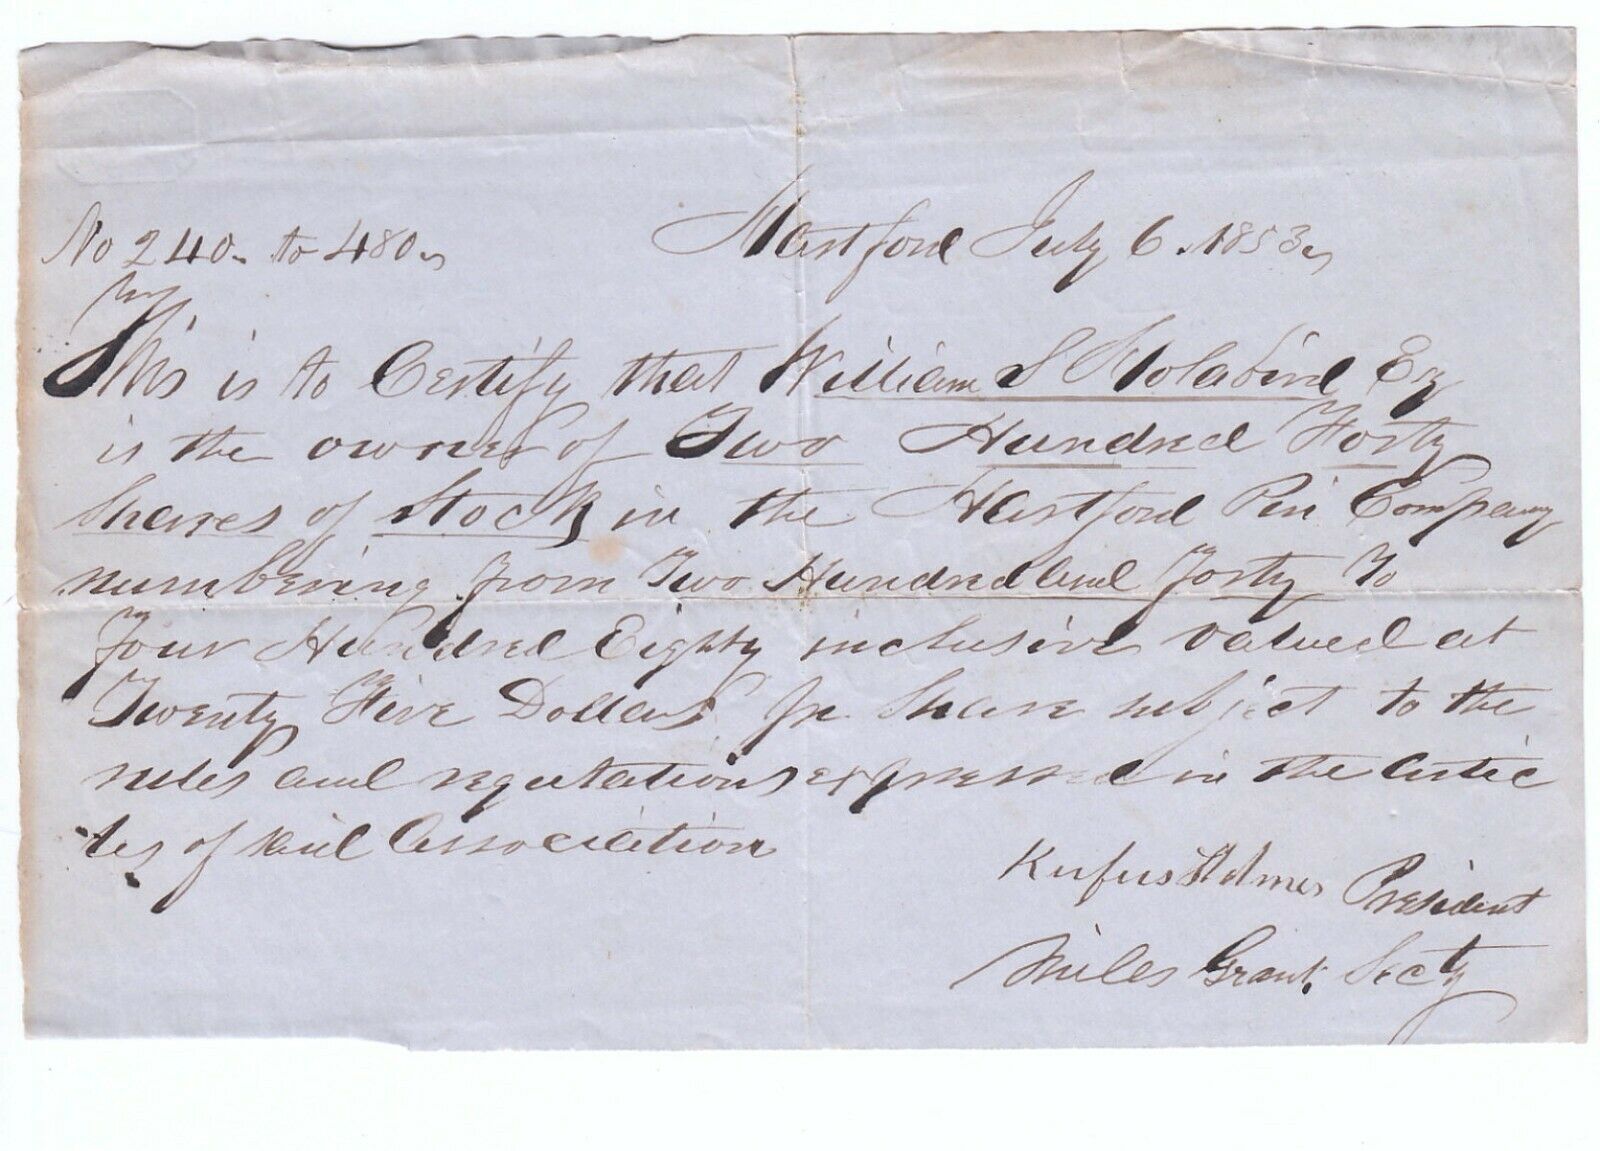 No 240 to 480
Hartford July 6. 1853
This is to Certify that William S Holabird Esq
is the owner of Two Hundred Forty
Shares of Stock in the Hartford Pin Company
numbering from Two Hundred and Forty To
Four Hundred Eighty inclusive valued at
Twenty Five Dollars Per Share subject to the
rules and regulations expressed in the Artic
les of said Association
Rufus Holmes President
Miles Grant. Secty